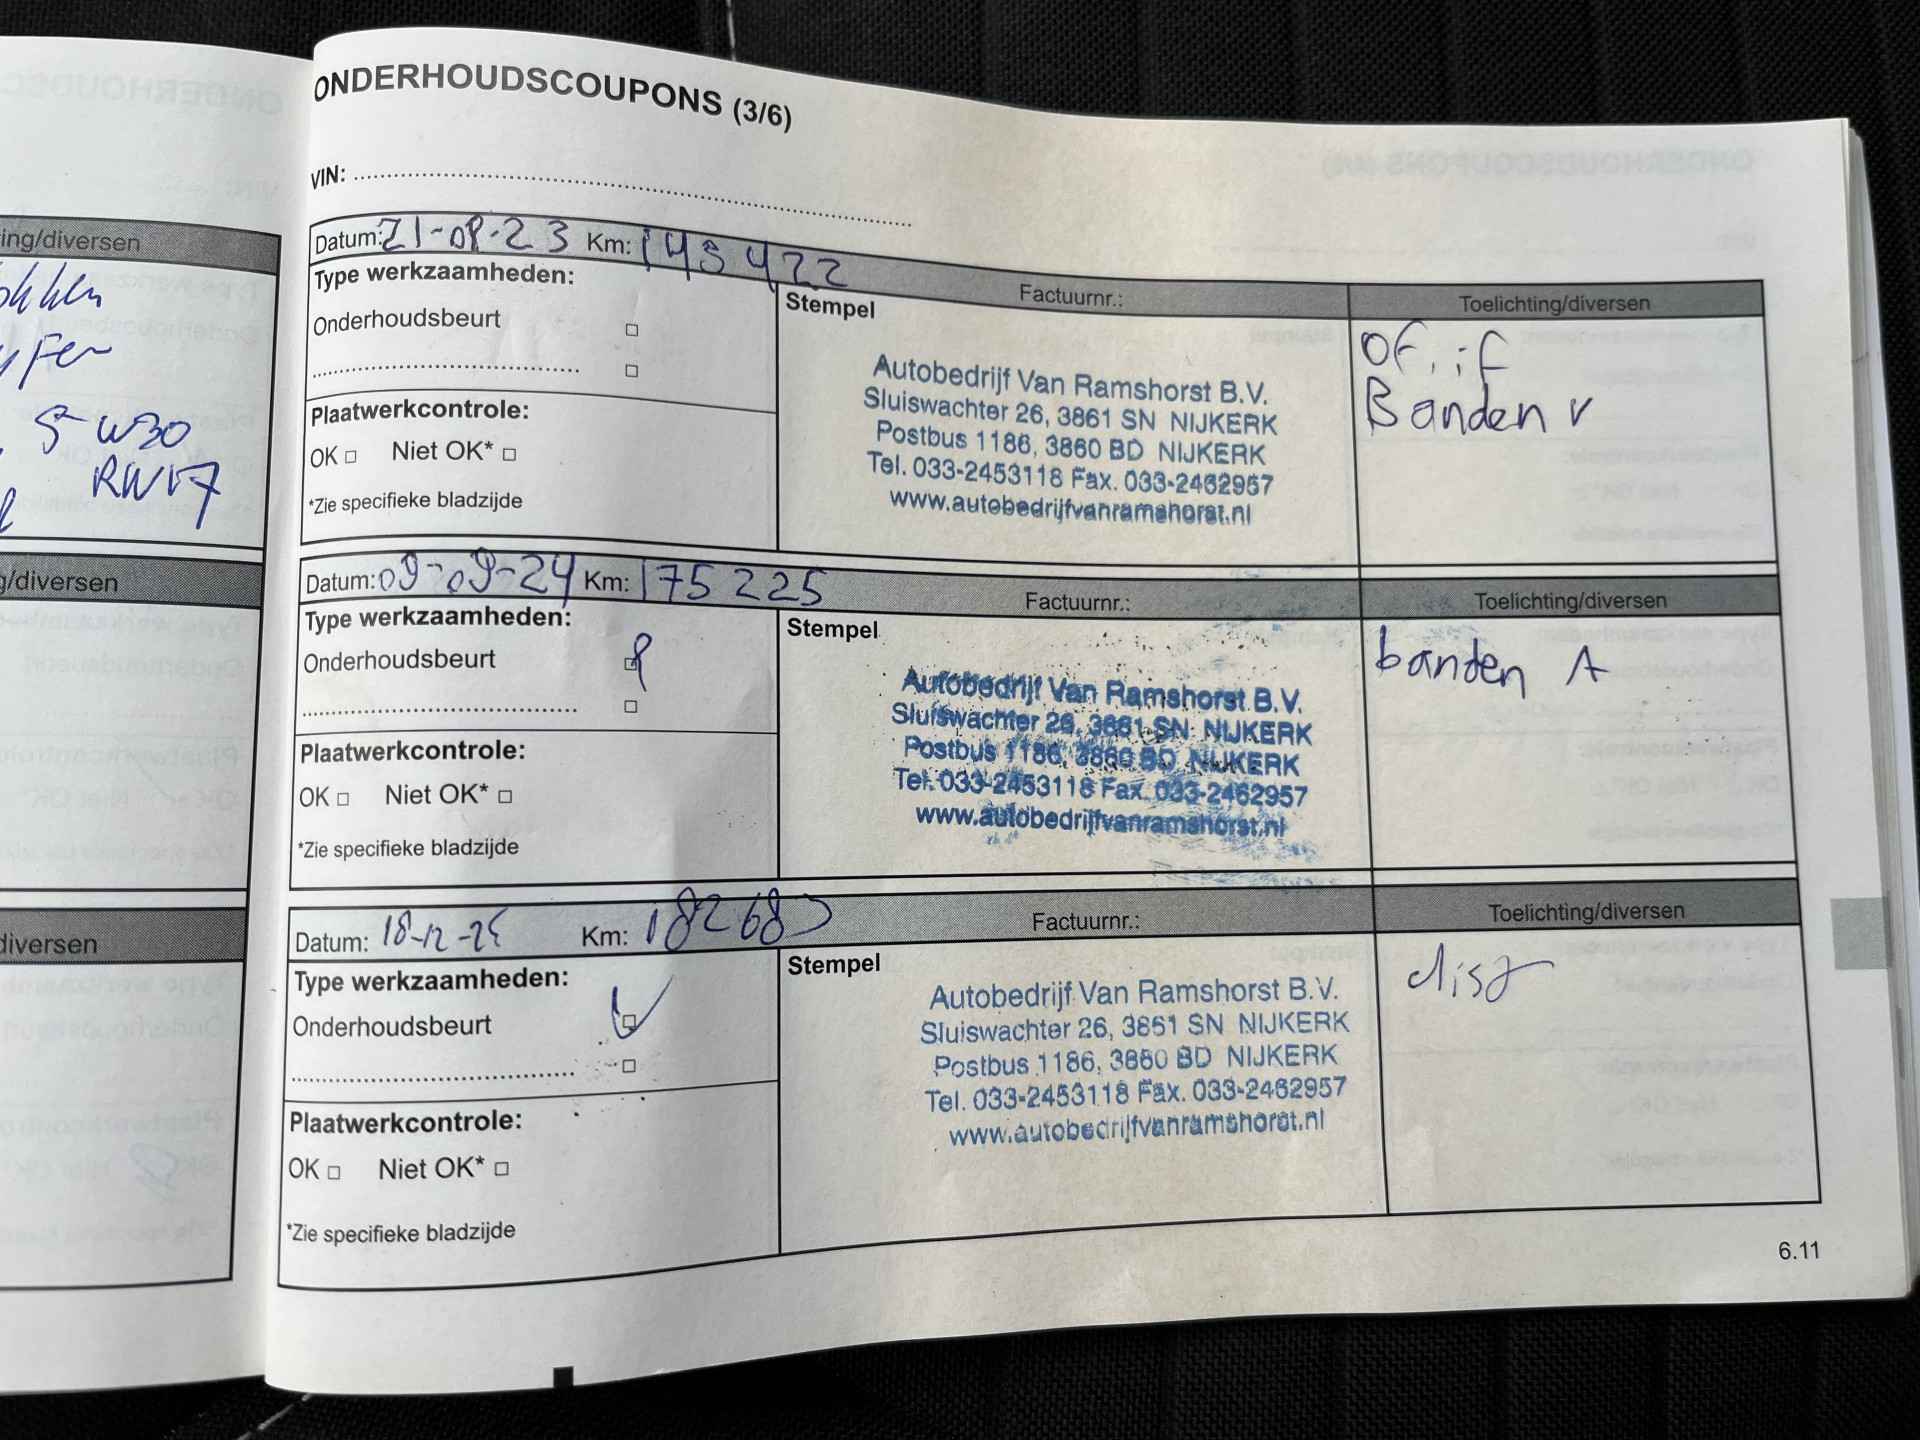 ONDERHOUDSCOUPONS (3/6)
VIN:
ing/diversen
5-W30
RW17
g/diversen
diversen
Datum: 21-08-23 Km: 145 422
Factuurnr.:
Toelichting/diversen
Type werkzaamheden:
Stempel
Onderhoudsbeurt
Plaatwerkcontrole:
OK Niet OK*
*Zie specifieke bladzijde
Autobedrijf Van Ramshorst B.V.
Sluiswachter 26, 3861 SN NIJKERK
Postbus 1186, 3860 BD NIJKERK
Tel. 033-2453118 Fax. 033-2462957
www.autobedrijfvanramshorst.nl
OF, if
Banden v
Datum: 09-09-24 Km: 175 225
Factuurnr.:
Toelichting/diversen
Type werkzaamheden:
Stempel
Onderhoudsbeurt
Plaatwerkcontrole:
OK Niet OK*
*Zie specifieke bladzijde
Autobedrijf Van Ramshorst B.V.
Sluiswachter 26, 3861 SN NIJKERK
Postbus 1186, 3860 BD NIJKERK
Tel. 033-2453118 Fax. 033-2462957
www.autobedrijfvanramshorst.nl
banden A
Datum: 18-12-25 Km:
Factuurnr.:
Toelichting/diversen
Type werkzaamheden:
Stempel
Onderhoudsbeurt
Plaatwerkcontrole:
OK Niet OK*
*Zie specifieke bladzijde
Autobedrijf Van Ramshorst B.V.
Sluiswachter 26, 3861 SN NIJKERK
Postbus 1186, 3860 BD NIJKERK
Tel. 033-2453118 Fax. 033-2462957
www.autobedrijfvanramshorst.nl
6.11